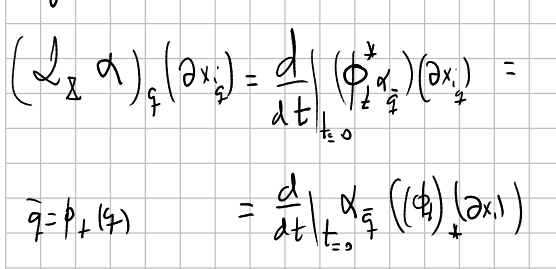 (ℒ_X α)_q (∂x_i_q) = d/dt |_{t=0} (ϕ_t^* α_q̄)(∂x_i_q) =
q̄ = ϕ_t(q) = d/dt |_{t=0} α_q̄ ((ϕ_t)_* (∂x_i))